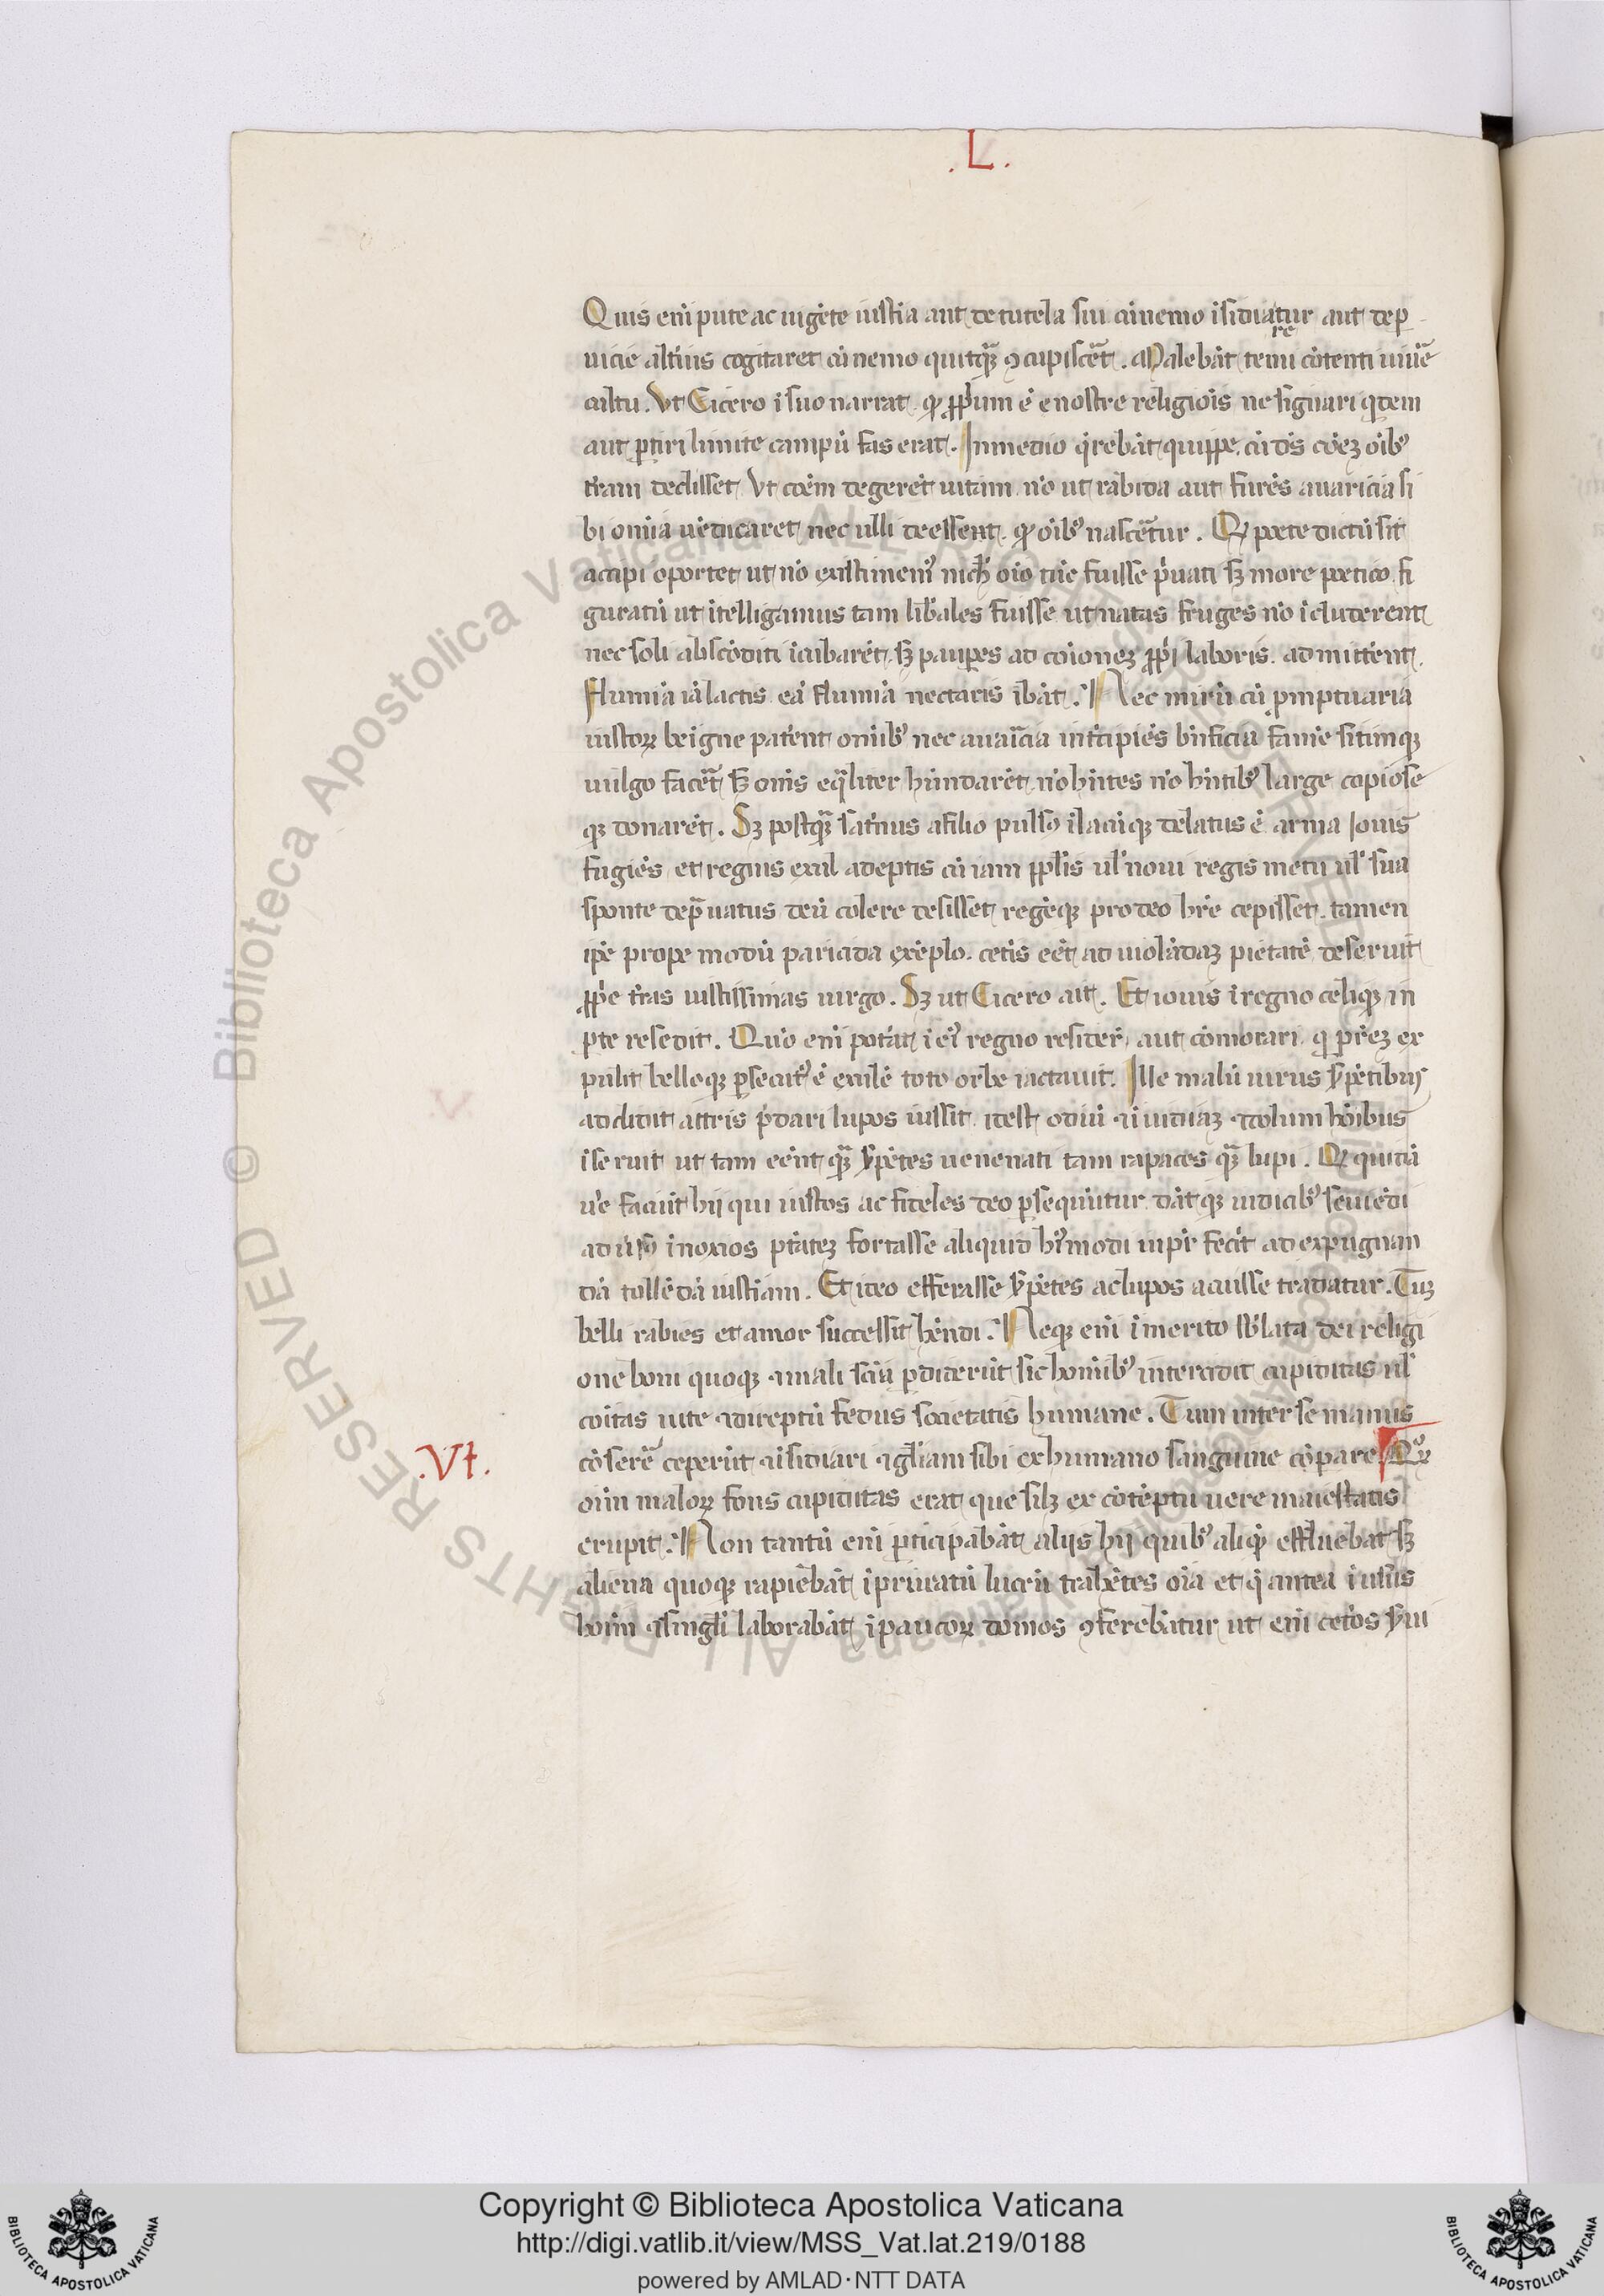 .L.
Quis eni pute ac uigēte iustīa aut de tutela sui cū nemo īsidiatur aut de p
nicie altīus cogitaret cū nemo quitq̄ ꝯcupiscēt. Malebāt tenui cōtenti uiuē
re
cultu. Vt Cicero ī suo narrat qd ꝓpīum ē e nostre religiōis ne signari qdem
aut ptiri limite campū fas erat. In medio qrebāt quippe cū ds cōez oīb'
trām dedisset Vt cōem degerēt uitam nō ut rabida aut furēs auaricia si
bi omīa uēdicaret nec ulli deessent qd oīb' nascētur. Qd poete dictū sit
accipi oportet ut nō existimem' nich' oīo tūc fuisse pruati sz more poetico fi
guratū ut ītelligamus tam libales fuisse ut natas fruges nō īcluderent
nec soli abscōditi īcubarēt sz paupes ad coīonez ꝓpī laboris admittent.
Flumīa iā lactis eā flumīa nectaris ibāt. Nec mirū cū pmptuaria
iustoꝝ beīgne patent omīb' nec auaīcia intcipiēs bnficia famē sitimqz
uulgo facet sz omīs eqliter hūndarēt nō hntes nō hntib' large copiose
qz donarēt. Sz postq̄ satnus a filio pulso ī lacīqz delatus ē arma Iouis
fugiēs et regnis exul adeptis cū iam pplis ul' noui regis metu ul' sua
sponte depuatus deū colere desisset regēqz pro deo hre cepisset tamen
ipē prope modū paricida exēplo cetis eēt ad uiolādaz pietatē deseruit
ꝓpe tras iustissimas uirgo. Sz ut Cicero ait. Et iouis ī regno celiqz in
pte resedit. Quō enī potat ī ei' regno resider aut cōmorari q prēz ex
pulit belloqz psecut' ē exulē toto orbe iactauit. Ille malū uirus spētibus
addidit attris pdari lupos iussit idest odiū ⁊ īuidiaz ⁊ dolum hoībus
īseruit ut tam eent q̄ spētes uenenati tam rapaces q̄ lupi. Qd quidā
ue faciūt hij qui iustos ac fideles deo psequūtur dātqz iudicib' seuiēdi
adūsus īnoxios ptatez fortasse aliquid hi'modi iupir fecit ad expugnan
dā tollēdā iustīam. Et ideo efferasse spētes ac lupos acuisse tradatur. Tuz
belli rabies et amor successit hēndi. Neqz enī īmerito sblata dei religi
one boni quoqz ⁊ mali sciā pdiderūt sic homīb' intercidit cupiditas ul'
coitas uite ⁊ direptū fedus societatis humane. Tum inter se manus
.VI.
cōserē ceperūt ⁊ īsidiari ⁊ gliam sibi ex humano sanguine cōpare Quoꝝ
oīm maloꝝ fons cupiditas erat que silz ex cōtēptu uere maiestatis
erupit. Non tantū enī pticipabāt alijs hij quib' aliqd effluebat sz
aliena quoqz rapiebāt ī priuatū lucrū trahētes oīa et q antea ī usus
hoīm ⁊ singli laborabāt ī paucoꝝ domos ꝯferebātur ut enī cetos sui
Copyright © Biblioteca Apostolica Vaticana
http://digi.vatlib.it/view/MSS_Vat.lat.219/0188
powered by AMLAD·NTT DATA